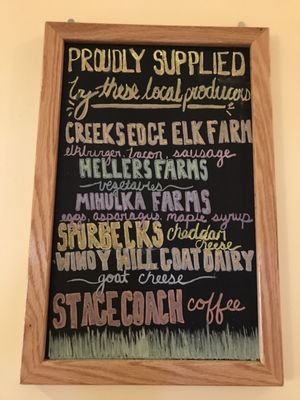 PROUDLY SUPPLIED
by these local producers
CREEKSEDGE ELK FARM
elkburger, bacon, sausage
HELLERS FARMS
vegetables
MIHULKA FARMS
eggs, asparagus, maple syrup
SPURBECKS cheddar cheese
WINDY HILL GOAT DAIRY
goat cheese
STAGECOACH coffee